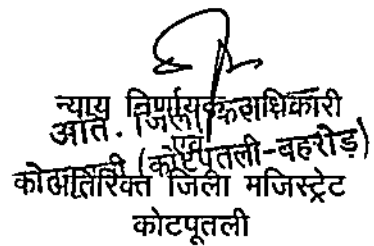 न्याय निर्णायक अधिकारी
अति. जिला कलक्टर
एवं
(कोटपूतली-बहरोड़)
अतिरिक्त जिला मजिस्ट्रेट
कोटपूतली